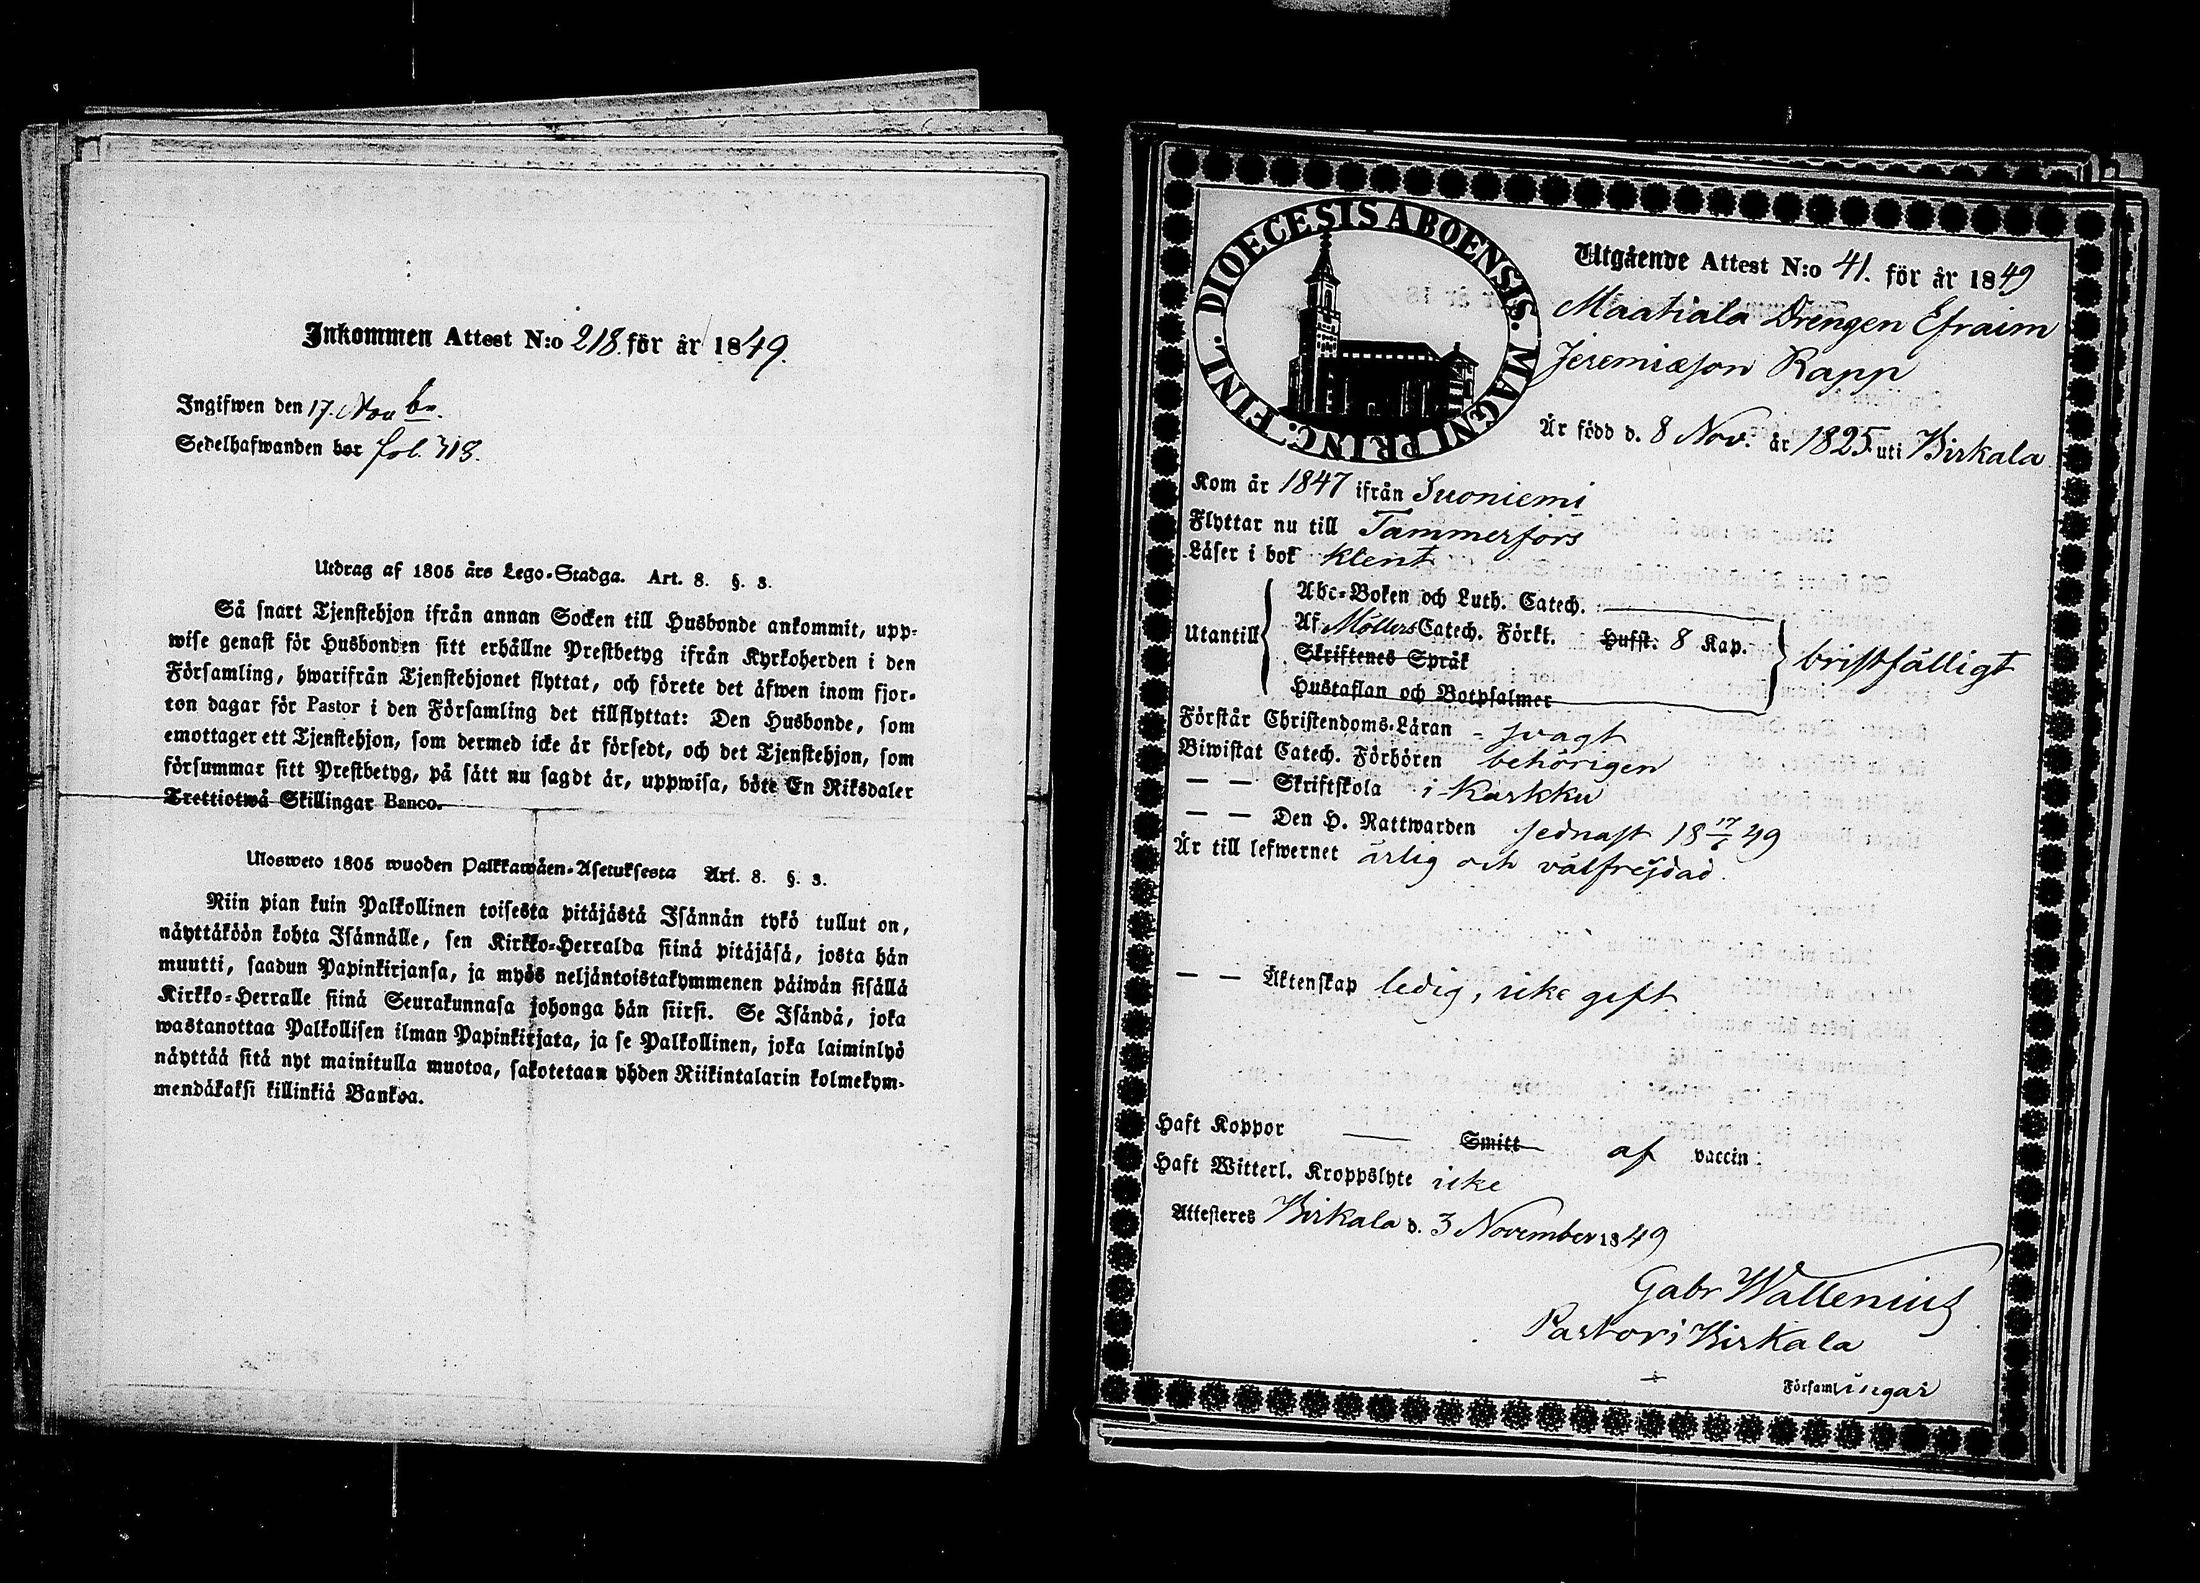 Inkommen Attest N:o 218. för år 1849.
Ingifwen den 17. Novbr.
Sedelhafwanden bor fol. 318.
Utdrag af 1805 års Lego-Stadga. Art. 8. §. 3.
Så snart Tjenstehjon ifrån annan Socken till Husbonde ankommit, upp-
wise genast för Husbonden sitt erhållne Prestbetyg ifrån Kyrkoherden i den
Församling, hwarifrån Tjenstehjonet flyttat, och förete det äfwen inom fjor-
ton dagar för Pastor i den Församling det tillflyttat: Den Husbonde, som
emottager ett Tjenstehjon, som dermed icke är försedt, och det Tjenstehjon, som
försummar sitt Prestbetyg, på sätt nu sagdt är, uppwisa, böte En Riksdaler
Trettiotwå Skillingar Banco.
Ulosweto 1805 wuoden Palkkawäen-Asetuksesta Art. 8. §. 3.
Niin pian kuin Palkollinen toisesta pitäjästä Isännän tykö tullut on,
näyttäköön kohta Isännälle, sen Kirkko-Herralda siinä pitäjäsä, josta hän
muutti, saadun Papinkirjansa, ja myös neljäntoistakymmenen päiwän sisällä
Kirkko-Herralle siinä Seurakunnasa johonga hän siirsi. Se Isändä, joka
wastanottaa Palkollisen ilman Papinkirjata, ja se Palkollinen, joka laiminlyö
näyttää sitä nyt mainitulla muotoa, sakotetaan yhden Riikintalarin kolmekym-
mendäkaksi killinkiä Bankoa.
DIOECESIS ABOENSIS. MAGNI PRINC. FINL.
Utgående Attest N:o 41. för år 1849
Maatiala Drengen Efraim
Jeremiæson Rapp
Är född d. 8 Nov. år 1825 uti Birkala
Kom år 1847 ifrån Suoniemi
Flyttar nu till Tammerfors
Läser i bok klent
Utantill Abc-Boken och Luth. Catech.
Af Möllers Catech. Förkl. Hufst. 8 Kap. bristfälligt
Skriftenes Språk
Hustaflan och Botpsalmer
Förstår Christendoms-Läran svagt
Biwistat Catech. Förhören behörigen
— — Skriftskola i Karkku
— — Den H. Nattwarden sednast 18 17/6 49
Är till lefwernet ärlig och välfrejdad.
— — Äktenskap ledig, icke gift
Haft Koppor — Smitt af vaccin
Haft Witterl. Kroppslyte icke
Attesteres Birkala d. 3 November 1849
Gabr Wallenius
Pastor i Birkala
Församlingar